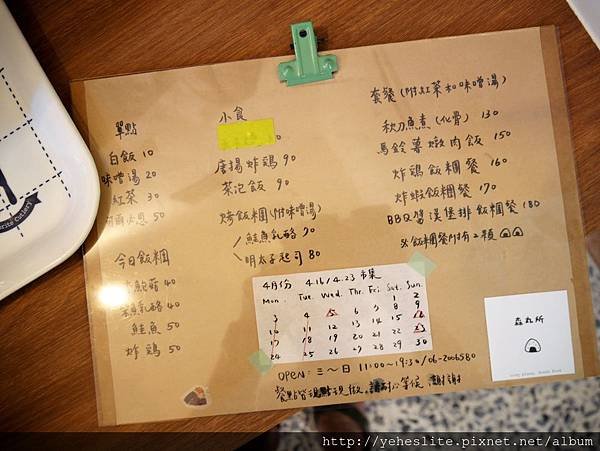 單點
白飯 10
味噌湯 20
紅茶 30
50
今日飯糰
鮑菇 40
乳酪 40
鮭魚 50
炸鷄 50
小食
唐揚炸鷄 90
茶泡飯 90
烤飯糰(附味噌湯)
鮭魚乳酪 90
明太子起司 80
套餐(附紅茶和味噌湯)
秋刀魚煮(化骨) 130
馬鈴薯燉肉飯 150
炸鷄飯糰餐 160
炸蝦飯糰餐 170
BBQ蟹漢堡排飯糰餐 180
※飯糰餐附有2顆
4月份 4.16/4.23 市集
Mon. Tue. Wed. Thr. Fri. Sat. Sun.
1 2
3 4 5 6 7 8 9
10 11 12 13 14 15 16
17 18 19 20 21 22 23
24 25 26 27 28 29 30
OPEN: 三~日 11:00~19:30/06-2006580
餐點皆現點現做,請耐心等候 謝謝
森丸所
http://yeheslite.pixnet.net/album